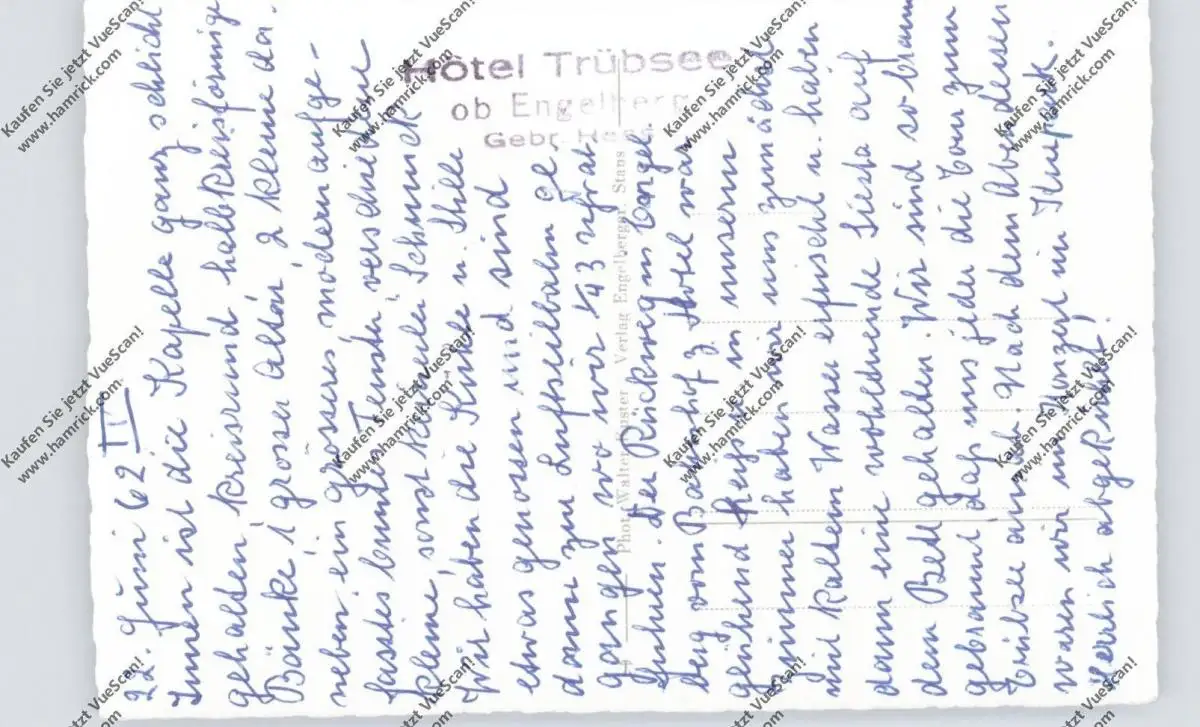 22. Juni 62 III
Innen ist die Kapelle ganz schlicht
gehalten kreisrund halbkreisförmige
Bänke 1 grosser Altar 2 kleine da-
neben ein grösseres modern aufge-
fasstes buntes Fenster verschiedene
kleine, sonst keinerlei Schmuck
Wir haben die Kühle u. Stille
etwas genossen und sind
dann zur Luftseilbahn ge
gangen wo wir 1/43 Uhr ab
fuhren. Der Rückweg in Engel
berg vom Bahnhof z. Hotel war
glühend heiss, in unserm
Zimmer haben wir uns zunächst
mit kaltem Wasser erfrischt u. haben
dann eine wohltuende Siesta auf
dem Bett gehalten. Wir sind so braun
gebrannt dass uns jeder die Tour zum
Trübsee ansieht. Nach dem Abendessen
waren wir im Konzert im Kurpark.
Herrlich abgekühlt!
Hotel Trübsee
ob Engelberg
Gebr. Hess
Photo Walter Verlag Engelberger, Stans
Kaufen Sie jetzt VueScan!
www.hamrick.com